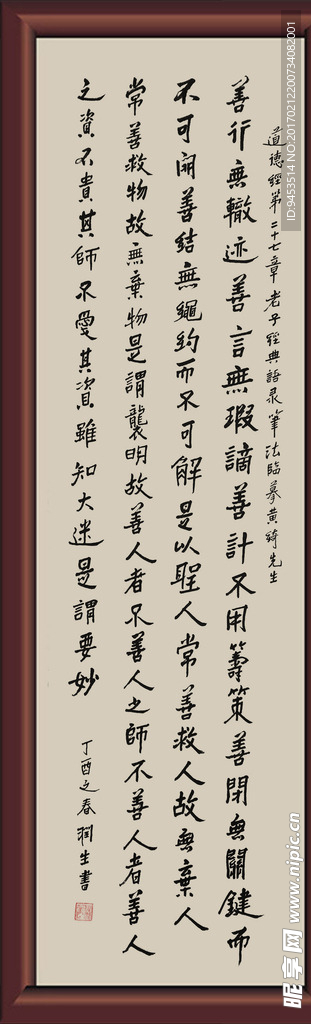 道德經第二十七章老子經典語录筆法臨摹黄琦先生
善行無轍迹善言無瑕謫善計不用籌策善閉無關鍵而
不可開善結無繩約而不可解是以聖人常善救人故無棄人
常善救物故無棄物是謂襲明故善人者不善人之師不善人者善人
之資不貴其師不愛其資雖知大迷是謂要妙
丁酉之春潤生書
ID:9453514 NO:20170212200734082001
昵享网 www.nipic.cn